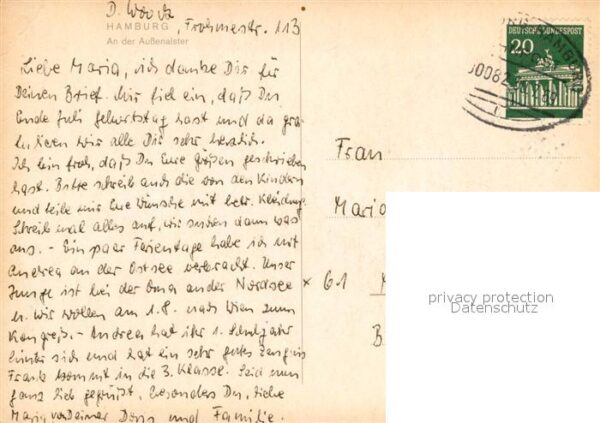 D. Woock
HAMBURG , Frohmestr. 113
An der Außenalster
Liebe Maria, ich danke Dir für
Deinen Brief. Mir fiel ein, daß Du
Ende Juli Geburtstag hast und da gra-
tulieren wir alle Dir sehr herzlich.
Ich bin froh, daß Du Eure Größen geschrieben
hast. Bitte schreib auch die von den Kindern
und teile mir Eure Wünsche mit betr. Kleidung.
Schreib mal alles auf, wir suchen dann was
aus. - Ein paar Ferientage habe ich mit
Andrea an der Ostsee verbracht. Unser
Junge ist bei der Oma an der Nordsee
u. wir wollen am 1.8. nach Wien zum
Kongreß. - Andrea hat ihr 1. Schuljahr
hinter sich und hat ein sehr gutes Zeugnis
Frank kommt in die 3. Klasse. Seid nun
ganz lieb gegrüßt, besonders Du, liebe
Maria von Deiner Doris und Familie.
DEUTSCHE BUNDESPOST
20
Frau
Maria
61
B
privacy protection
Datenschutz